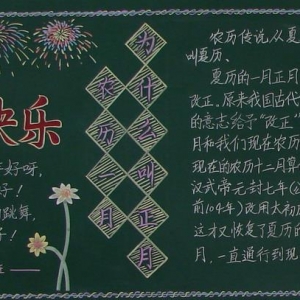 快乐
好呀，
子！
跳舞，
子！
在——
为什么叫正月
农历一月
农历传说从夏
叫夏历。
夏历的一月正月
改正。原来我国古代
的意志给予“改正”
月和我们现在农历
现在的农历十二月算
汉武帝元封七年（公
前104年）改用太初历
这才恢复了夏历的
月，一直通行到现